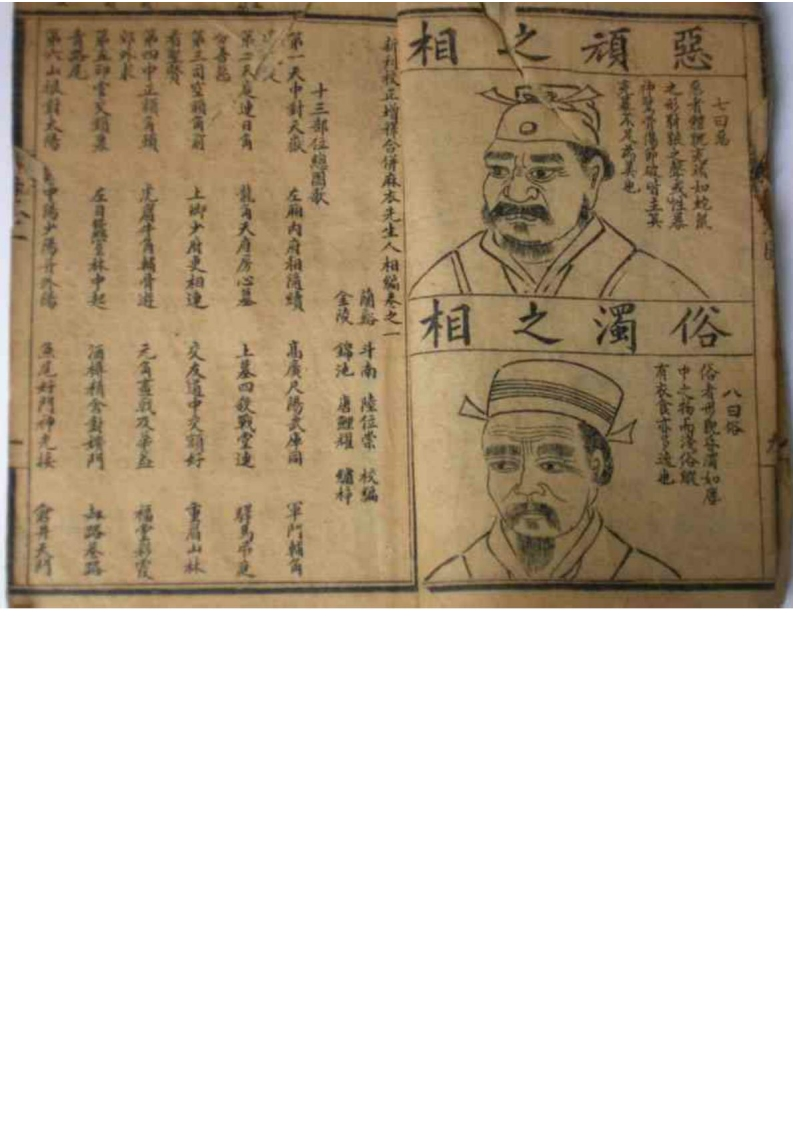 惡頑之相
七曰惡
惡者體貌兇頑如蛇鼠
之形豺狼之聲或性暴
神驚骨傷節破皆主其
兇暴不足為美也
俗濁之相
八曰俗
俗者形貌昏濁如塵
中之物而淺俗縱
有衣食亦多迍也
新刊校正增釋合併麻衣先生人相編卷之一
蘭谿 斗南 陸位崇 校編
金陵 錦池 唐鯉耀 繡梓
十三部位總圖歌
第一天中對天嶽 左廂內府相隨續 高廣尺陽武庫同 軍門輔角
第二天庭連日角 龍角天府房心墓 上墓四殺戰堂連 驛馬吊庭
分善惡
第三司空額角前 上卿少府更相連 交友道中交額好 重眉山林
看聖賢
第四中正額角頭 虎眉牛角輔骨遊 元角斧戟及華蓋 福堂彩霞
郊外求
第五印堂交鎖裏 左目蠶室林中起 酒樽精舍對嬪門 劫路巷路
青路尾
第六山根對太陽 中陽少陽并外陽 魚尾奸門神光接 倉井天門